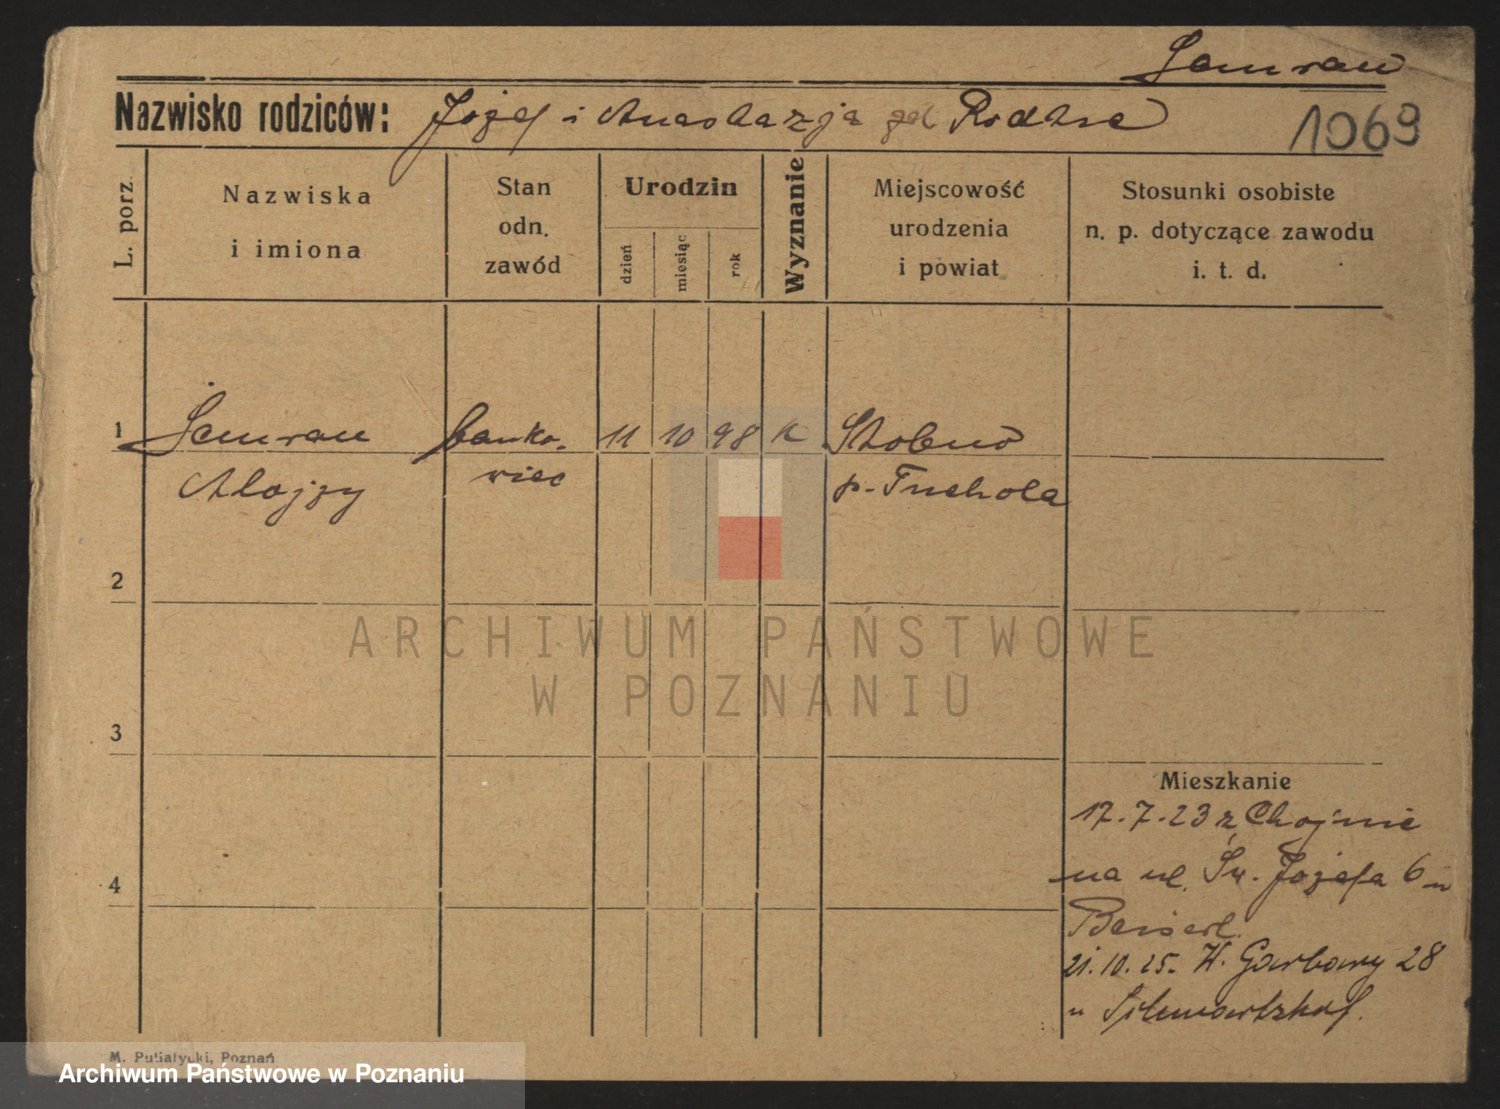 Semrau
Nazwisko rodziców: Józef i Anastazja
1069
L. porz.
Nazwiska
i imiona
Stan
odn.
zawód
Urodzin
dzień
miesiąc
rok
Wyznanie
Miejscowość
urodzenia
i powiat
Stosunki osobiste
n. p. dotyczące zawodu
i. t. d.
1 Semrau banko- 11 10 98 K Stobno
Alojzy wiec p. Tuchola
2
ARCHIWUM PAŃSTWOWE
W POZNANIU
3
Mieszkanie
17.7.23 z Chojnic
4
na ul. Św. Józefa 6 u
21.10.25. W. Garbary 28
u
M. Putiatycki, Poznań
Archiwum Państwowe w Poznaniu